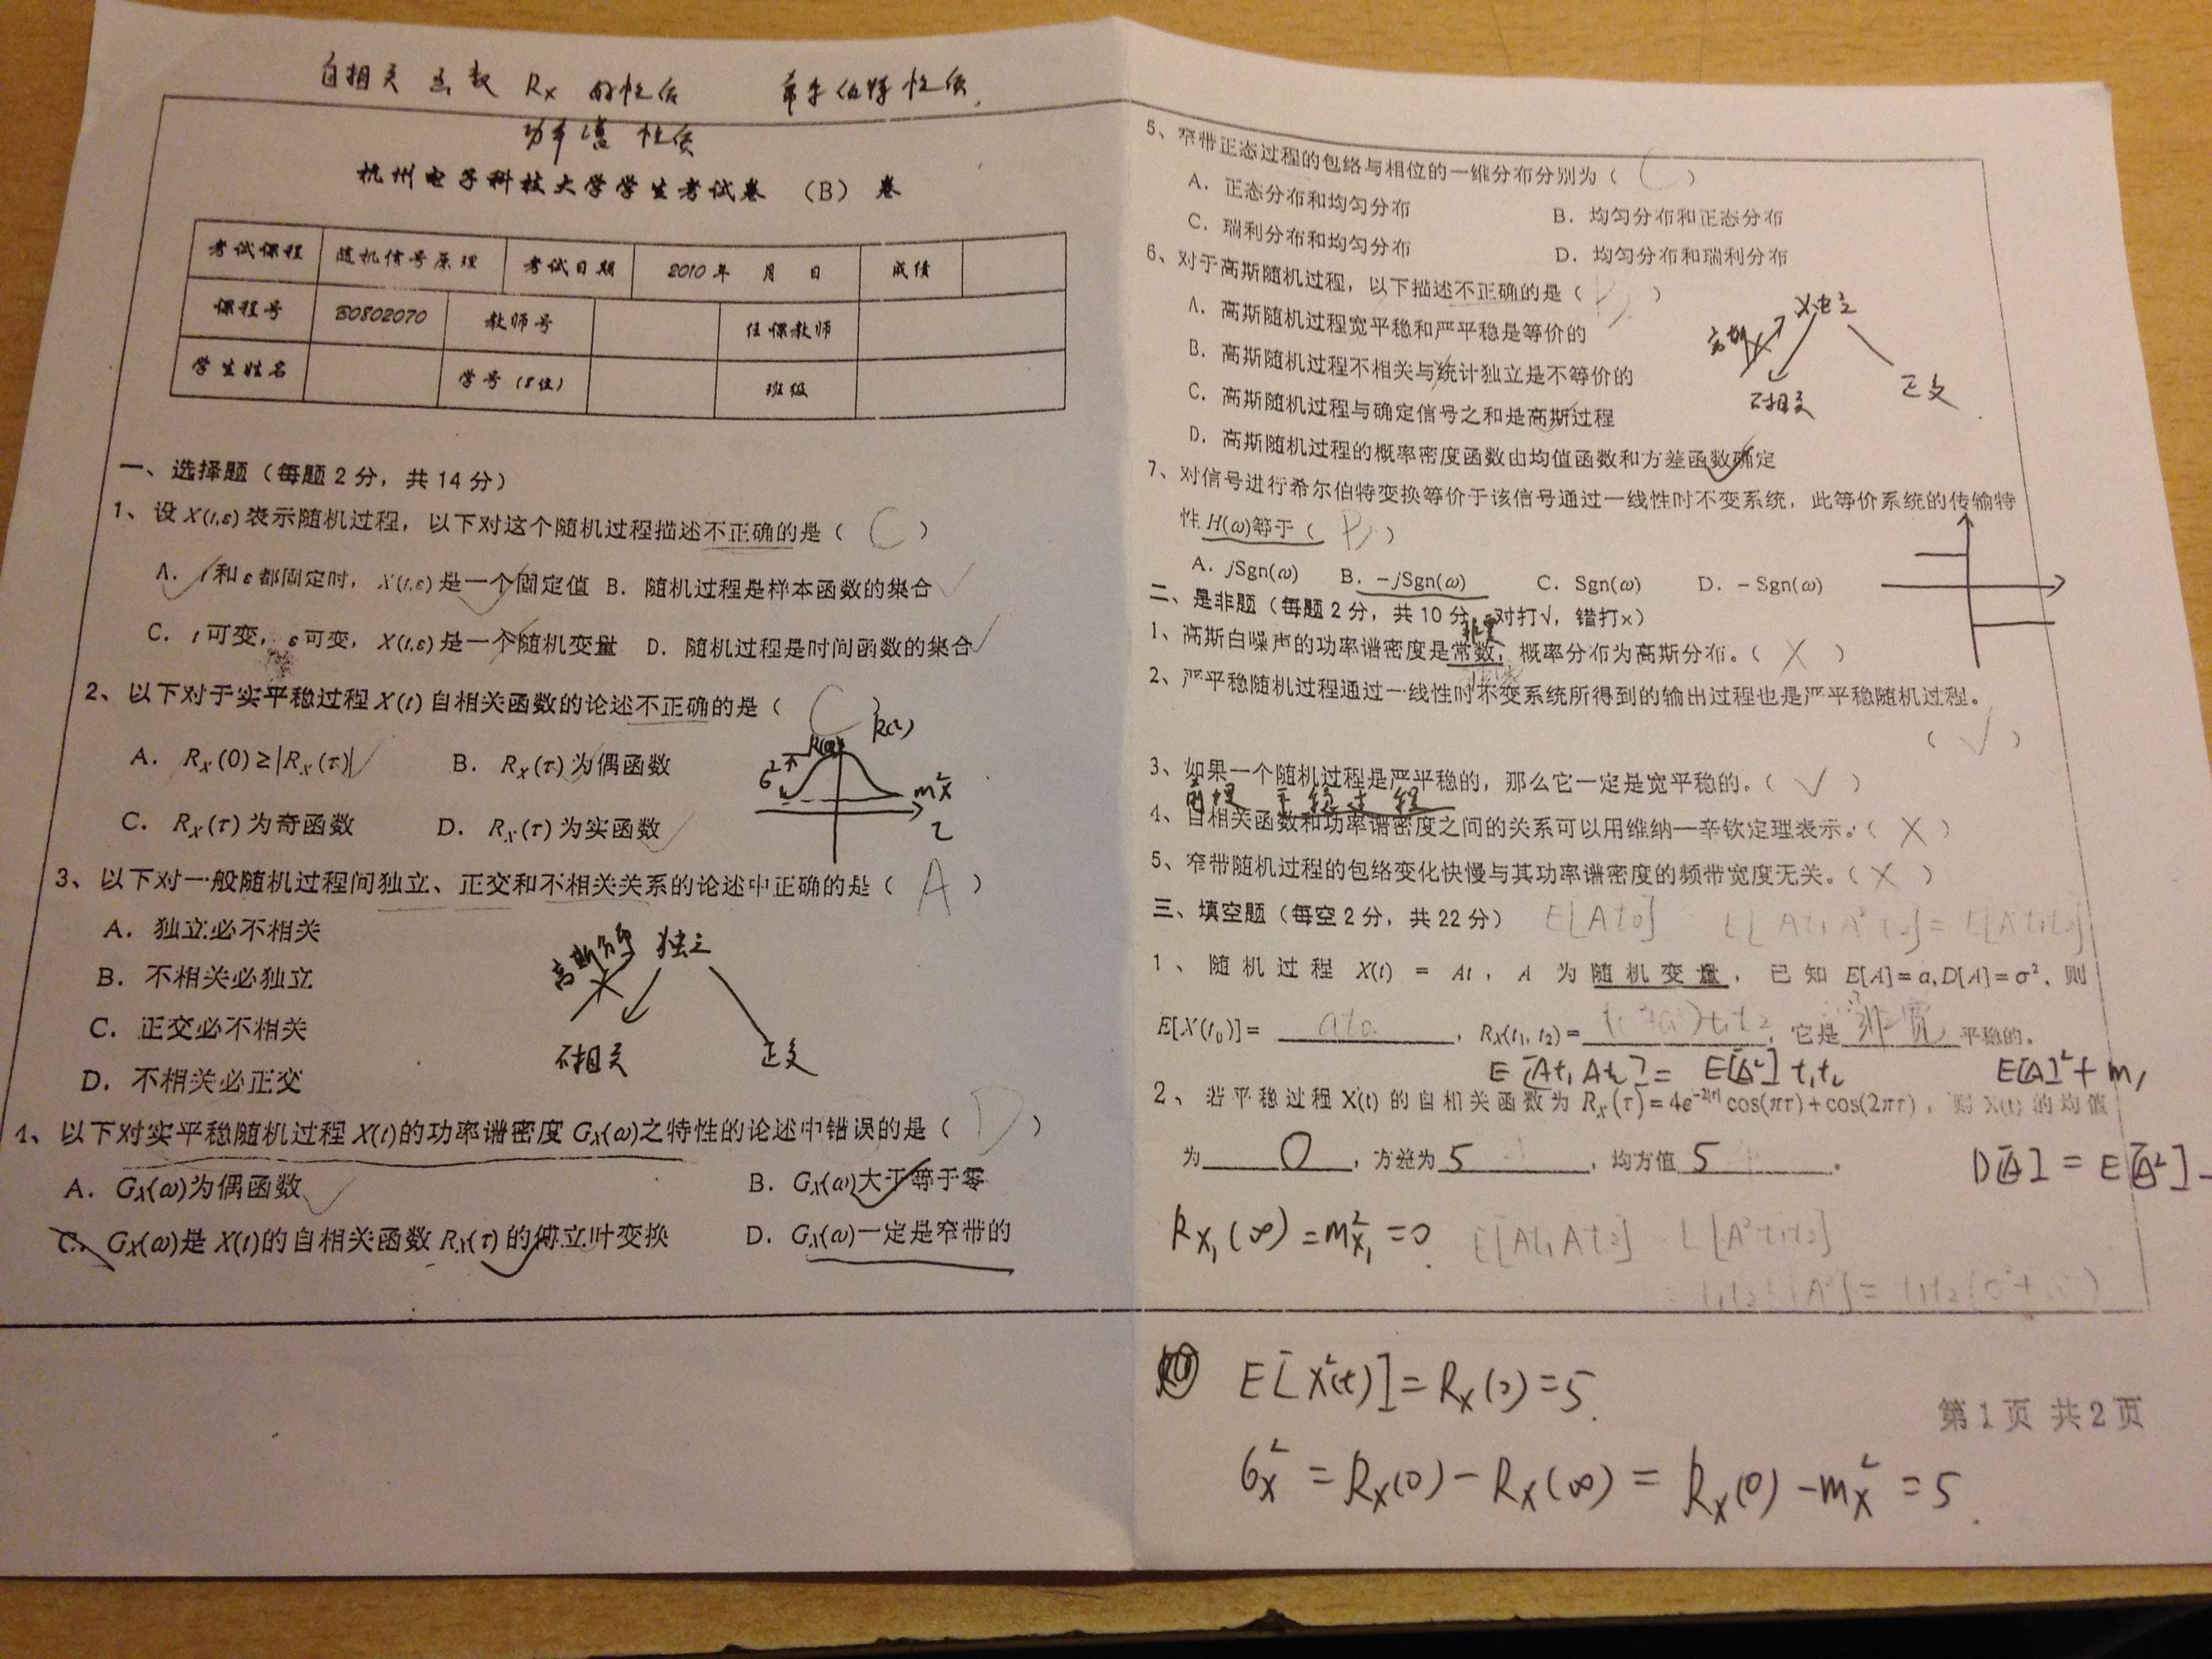 自相关函数 Rx 的性质 希尔伯特性质.
功率谱 性质
杭州电子科技大学学生考试卷 (B) 卷
考试课程 随机信号原理 考试日期 2010年 月 日 成绩
课程号 B0802070 教师号 任课教师
学生姓名 学号(8位) 班级
一、选择题(每题2分,共14分)
1、设X(t,ε)表示随机过程,以下对这个随机过程描述不正确的是( C )
A. t和ε都固定时,X(t,ε)是一个固定值 B. 随机过程是样本函数的集合
C. t可变,ε可变,X(t,ε)是一个随机变量 D. 随机过程是时间函数的集合
2、以下对于实平稳过程X(t)自相关函数的论述不正确的是( C )
R(τ)
R(0)
A. Rx(0)≥|Rx(τ)| B. Rx(τ)为偶函数
σ² m²x
C. Rx(τ)为奇函数 D. Rx(τ)为实函数
τ
3、以下对一般随机过程间独立、正交和不相关关系的论述中正确的是( A )
A. 独立必不相关
高斯 独立
B. 不相关必独立
C. 正交必不相关
不相关 正交
D. 不相关必正交
4、以下对实平稳随机过程X(t)的功率谱密度Gx(ω)之特性的论述中错误的是( D )
A. Gx(ω)为偶函数 B. Gx(ω)大于等于零
C. Gx(ω)是X(t)的自相关函数Rx(τ)的傅立叶变换 D. Gx(ω)一定是窄带的
5、窄带正态过程的包络与相位的一维分布分别为( C )
A. 正态分布和均匀分布 B. 均匀分布和正态分布
C. 瑞利分布和均匀分布 D. 均匀分布和瑞利分布
6、对于高斯随机过程,以下描述不正确的是( B )
A. 高斯随机过程宽平稳和严平稳是等价的
高斯 独立
B. 高斯随机过程不相关与统计独立是不等价的
不相关 正交
C. 高斯随机过程与确定信号之和是高斯过程
D. 高斯随机过程的概率密度函数由均值函数和方差函数确定
7、对信号进行希尔伯特变换等价于该信号通过一线性时不变系统,此等价系统的传输特
性H(ω)等于( B )
A. jSgn(ω) B. -jSgn(ω) C. Sgn(ω) D. -Sgn(ω)
二、是非题(每题2分,共10分,对打√,错打×)
1、高斯白噪声的功率谱密度是常数,概率分布为高斯分布。( X )
2、严平稳随机过程通过一线性时不变系统所得到的输出过程也是严平稳随机过程。
( √ )
3、如果一个随机过程是严平稳的,那么它一定是宽平稳的。( √ )
平稳过程
4、自相关函数和功率谱密度之间的关系可以用维纳—辛钦定理表示。( X )
5、窄带随机过程的包络变化快慢与其功率谱密度的频带宽度无关。( X )
三、填空题(每空2分,共22分) E[At0]
1、随机过程 X(t) = At,A 为随机变量,已知 E[A]=a,D[A]=σ²,则
E[X(t0)]= at0,Rx(t1, t2)= (σ²+a²)t1t2,它是 非宽 平稳的。
E[At1 At2] = E[A²] t1t2 E[A]²+m1
2、若平稳过程X(t)的自相关函数为 Rx(τ)=4e^{-2|τ|}cos(πτ)+cos(2πτ),则X(t)的均值
为 0,方差为 5,均方值 5。
D[A] = E[A²] -
Rx₁(∞) = m²x₁ = 0. E[At1 At2] E[A²t1t2]
E[X²(t)] = Rx(0) = 5.
第1页 共2页
σ²x = Rx(0) - Rx(∞) = Rx(0) - m²x = 5.